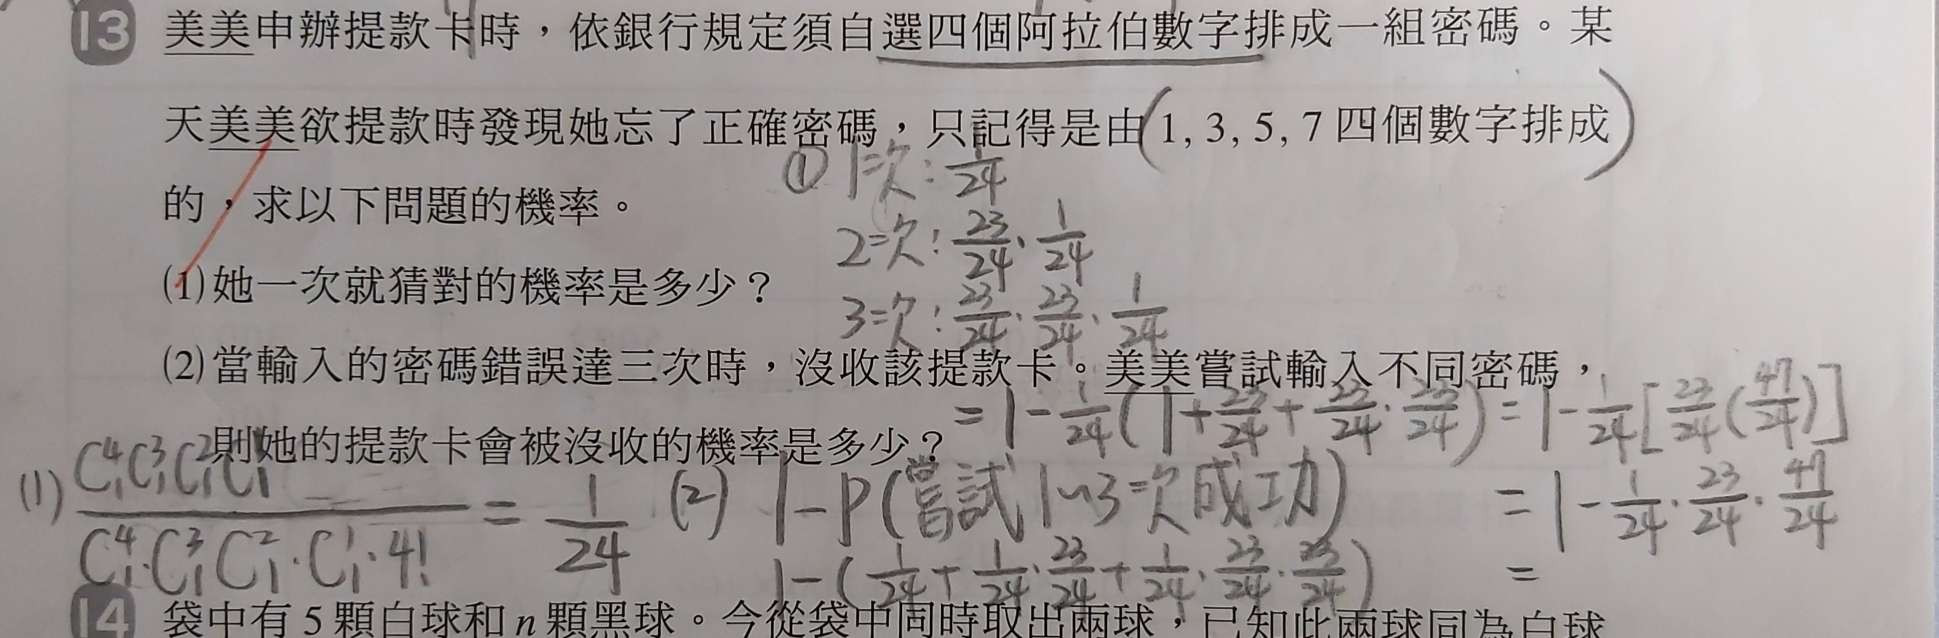 13 美美申辦提款卡時，依銀行規定須自選四個阿拉伯數字排成一組密碼。某
天美美欲提款時發現她忘了正確密碼，只記得是由(1, 3, 5, 7 四個數字排成)
的，求以下問題的機率。
① 1次: 1/24
2次: 23/24 · 1/24
3次: 23/24 · 23/24 · 1/24
(1)她一次就猜對的機率是多少？
(2)當輸入的密碼錯誤達三次時，沒收該提款卡。美美嘗試輸入不同密碼，
則她的提款卡會被沒收的機率是多少？
(1) C⁴₁C³₁C²₁C¹₁ / C⁴₁·C³₁C²₁·C¹₁·4! = 1/24
(2) 1-P(嘗試1~3次成功)
1-(1/24+1/24·23/24+1/24·23/24·23/24)
=1-1/24(1+23/24+23/24·23/24)=1-1/24[23/24(47/24)]
=1-1/24·23/24·47/24
=
14 袋中有 5 顆白球和 n 顆黑球。今從袋中同時取出兩球，已知此兩球同為白球